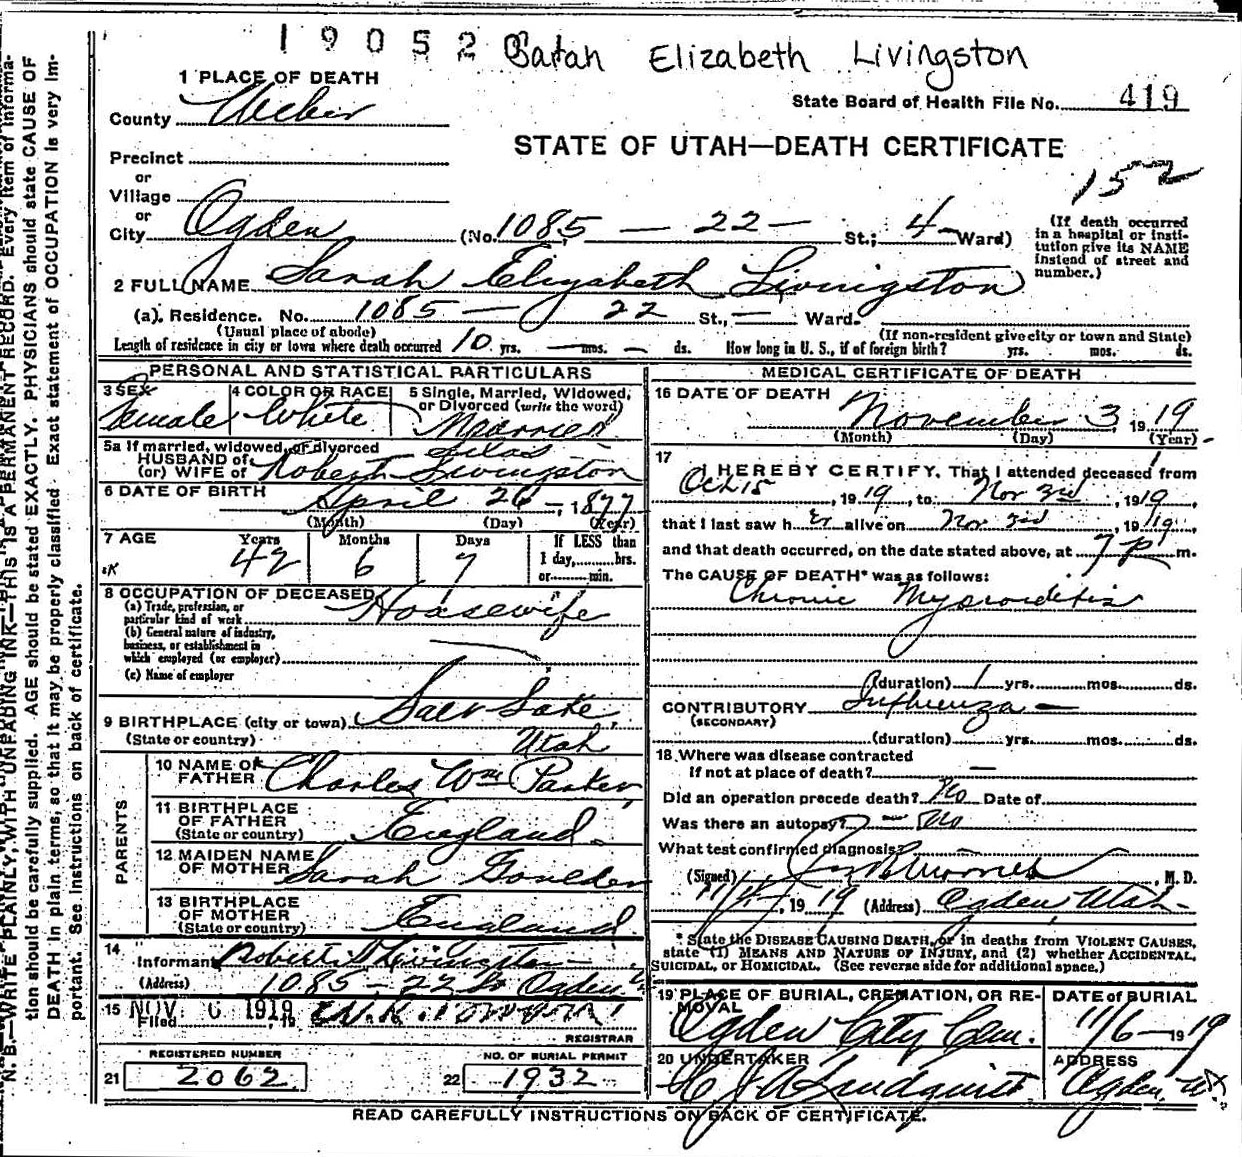 19052 Sarah Elizabeth Livingston
1 PLACE OF DEATH
County Weber
State Board of Health File No. 419
STATE OF UTAH—DEATH CERTIFICATE
Precinct
or
Village
152
or
City Ogden (No. 1085 — 22 — St.; 4 Ward)
(If death occurred in a hospital or insti-
tution give its NAME
instead of street and
number.)
2 FULL NAME Sarah Elizabeth Livingston
(a). Residence. No. 1085 — 22 St., — Ward.
(Usual place of abode) (If non-resident give city or town and State)
Length of residence in city or town where death occurred 10 yrs. — mos. — ds. How long in U. S., if of foreign birth? yrs. mos. ds.
PERSONAL AND STATISTICAL PARTICULARS
3 SEX Female
4 COLOR OR RACE White
5 Single, Married, Widowed, or Divorced (write the word) Married
5a If married, widowed, or divorced
HUSBAND of
(or) WIFE of Robert Silas Livingston
6 DATE OF BIRTH April 26 —, 1877
(Month) (Day) (Year)
7 AGE Years 42 Months 6 Days 7 If LESS than 1 day, hrs. or min.
8 OCCUPATION OF DECEASED Housewife
(a) Trade, profession, or
particular kind of work
(b) General nature of industry,
business, or establishment in
which employed (or employer)
(c) Name of employer
9 BIRTHPLACE (city or town) Salt Lake,
(State or country) Utah
PARENTS
10 NAME OF FATHER Charles Wm Parker
11 BIRTHPLACE OF FATHER (State or country) England
12 MAIDEN NAME OF MOTHER Sarah Goulden
13 BIRTHPLACE OF MOTHER (State or country) England
14 Informant Robert S Livingston
(Address) 1085 — 22 St Ogden
15 Filed NOV 6 1919, 19
REGISTRAR
REGISTERED NUMBER
21 2062
NO. OF BURIAL PERMIT
22 1932
MEDICAL CERTIFICATE OF DEATH
16 DATE OF DEATH November 3, 1919
(Month) (Day) (Year)
17 I HEREBY CERTIFY, That I attended deceased from
Oct 15, 1919, to Nov 3rd, 1919,
that I last saw her alive on Nov 3rd, 1919,
and that death occurred, on the date stated above, at 7 P m.
The CAUSE OF DEATH* was as follows:
Chronic Myocarditis
(duration) 1 yrs. mos. ds.
CONTRIBUTORY Influenza —
(SECONDARY)
(duration) — yrs. mos. ds.
18 Where was disease contracted
if not at place of death? —
Did an operation precede death? No Date of
Was there an autopsy? — No
What test confirmed diagnosis?
(Signed) , M. D.
, 1919 (Address) Ogden Utah
* State the DISEASE CAUSING DEATH, or in deaths from VIOLENT CAUSES,
state (1) MEANS AND NATURE OF INJURY, and (2) whether ACCIDENTAL,
SUICIDAL, or HOMICIDAL. (See reverse side for additional space.)
19 PLACE OF BURIAL, CREMATION, OR RE-
MOVAL Ogden City Cem.
DATE of BURIAL 11/6 — 1919
20 UNDERTAKER Lindquist
ADDRESS Ogden, Ut
READ CAREFULLY INSTRUCTIONS ON BACK OF CERTIFICATE.
N. B.—WRITE PLAINLY, WITH UNFADING INK—THIS IS A PERMANENT RECORD. Every item of informa-
tion should be carefully supplied. AGE should be stated EXACTLY. PHYSICIANS should state CAUSE OF
DEATH in plain terms, so that it may be properly classified. Exact statement of OCCUPATION is very im-
portant. See instructions on back of certificate.